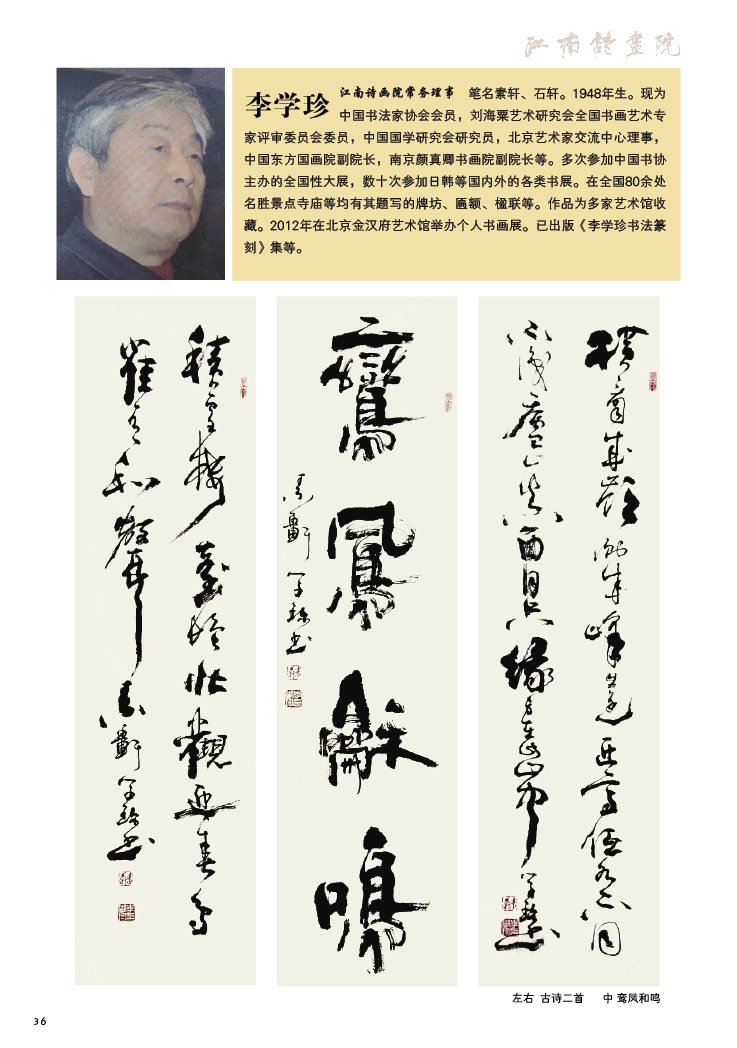 江南詩畫院
李学珍 江南诗画院常务理事 笔名素轩、石轩。1948年生。现为
中国书法家协会会员，刘海粟艺术研究会全国书画艺术专
家评审委员会委员，中国国学研究会研究员，北京艺术家交流中心理事，
中国东方国画院副院长，南京颜真卿书画院副院长等。多次参加中国书协
主办的全国性大展，数十次参加日韩等国内外的各类书展。在全国80余处
名胜景点寺庙等均有其题写的牌坊、匾额、楹联等。作品为多家艺术馆收
藏。2012年在北京金汉府艺术馆举办个人书画展。已出版《李学珍书法篆
刻》集等。
橫看成嶺側成峰遠近高低各不同
不識廬山真面目只緣身在此山中
鸞鳳龢鳴
素軒学珍书
素軒学珍书
左右 古诗二首 中 鸾凤和鸣
36